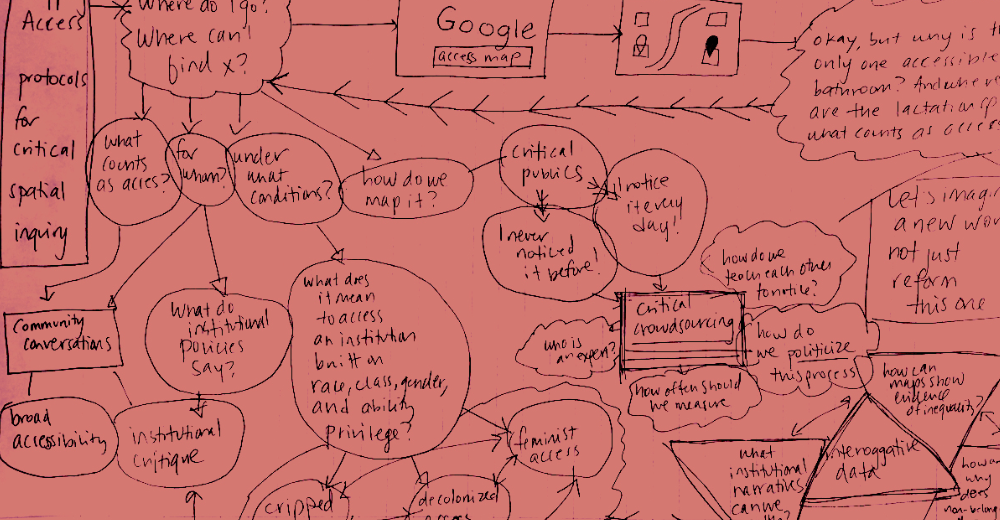 Access
protocols
for
critical
spatial
inquiry
Where do I go?
Where can't
find x?
Google
access map
okay, but why is
only one accessible
bathroom? And where
are the lactation
what counts as
what
counts
as acces?
for
whom?
under
what
conditions?
how do we
map it?
critical
publics
I notice
it every
day!
I never
noticed
it before!
Let's
a new
not just
reform
this one
how do we
teach each other
to notice?
critical
crowdsourcing
who is
an expert?
how do
we politicize
this process
how often should
we measure
Community
conversations
What do
institutional
policies
say?
what does
it mean
to access
an institution
built on
race, class, gender,
and ability
privilege?
broad
accessibility
institutional
critique
feminist
access
cripped
decolonized
how can
maps show
evidence
of inequality?
what
institutional
narratives
can we
interoggative
data
why
does